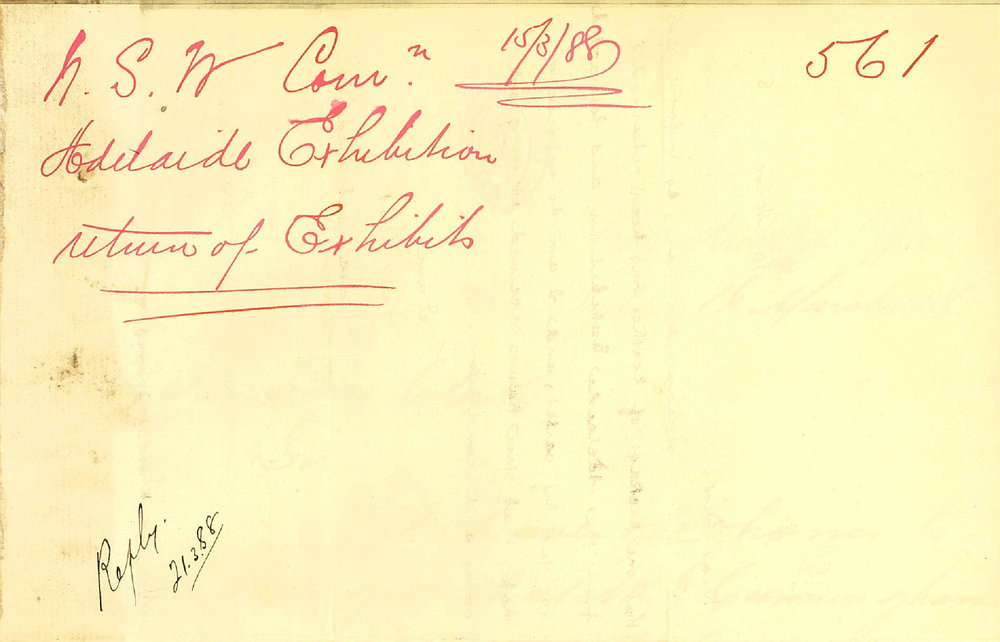 N. S. W Com.ⁿ 15/3/88 561
Adelaide Exhibition
return of Exhibits
Reply.
21.3.88